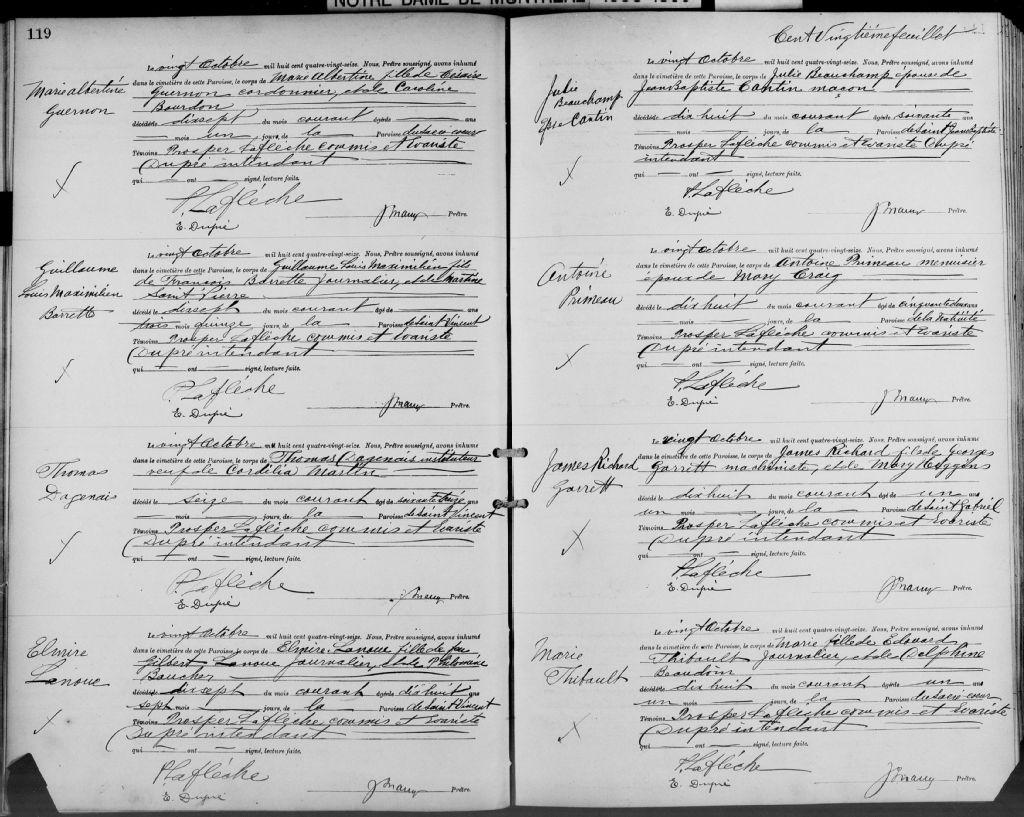 NOTRE DAME DE MONTREAL
119
Marie Albertine
Guernon
Le vingt Octobre mil huit cent quatre-vingt-seize. Nous, Prêtre soussigné, avons inhumé
dans le cimetière de cette Paroisse, le corps de Marie Albertine fille de Césaire
Guernon cordonnier, et de Caroline
Bourdon
décédée dixsept du mois courant âgée de — ans
— un — jours, de la Paroisse du Sacré coeur
Témoins Prosper Laflèche commis et Evariste
Dupré intendant
qui — ont — signé, lecture faite.
P. Laflèche
E. Dupré
Prêtre.
Guillaume
Louis Maximilien
Barrette
Le vingt Octobre mil huit cent quatre-vingt-seize. Nous, Prêtre soussigné, avons inhumé
dans le cimetière de cette Paroisse, le corps de Guillaume Louis Maximilien fils
de François Barrette journalier, et de Martine
Saint Pierre
décédé le dixsept du mois courant âgé de — ans
trois mois quinze jours, de la Paroisse de Saint Vincent
Témoins Prosper Laflèche commis et Evariste
Dupré intendant
qui — ont — signé, lecture faite.
P. Laflèche
E. Dupré
Prêtre.
Thomas
Dagenais
Le vingt Octobre mil huit cent quatre-vingt-seize. Nous, Prêtre soussigné, avons inhumé
dans le cimetière de cette Paroisse, le corps de Thomas Dagenais instituteur
veuf de Cordélia Martin
décédé le seize du mois courant âgé de soixante treize ans
— mois — jours, de la Paroisse de Saint Vincent
Témoins Prosper Laflèche commis et Evariste
Dupré intendant
qui — ont — signé, lecture faite.
P. Laflèche
E. Dupré
Prêtre.
Elmire
Lanoue
Le vingt Octobre mil huit cent quatre-vingt-seize. Nous, Prêtre soussigné, avons inhumé
dans le cimetière de cette Paroisse, le corps de Elmire Lanoue fille de feu
Gilbert Lanoue journalier, et de Philomène
Boucher
décédée dixsept du mois courant âgée de dixhuit ans
sept mois — jours, de la Paroisse de Saint Vincent
Témoins Prosper Laflèche commis et Evariste
Dupré intendant
qui — ont — signé, lecture faite.
P. Laflèche
E. Dupré
Prêtre.
Cent Vingtième feuillet
Julie
Beauchamp
Epse Cantin
Le vingt Octobre mil huit cent quatre-vingt-seize. Nous, Prêtre soussigné, avons inhumé
dans le cimetière de cette Paroisse, le corps de Julie Beauchamp épouse de
Jean Baptiste Cantin maçon
décédée dix huit du mois courant âgée de soixante ans
— mois — jours, de la Paroisse de Saint Jean Baptiste
Témoins Prosper Laflèche commis et Evariste Dupré
intendant
qui — ont — signé, lecture faite.
P. Laflèche
E. Dupré
Prêtre.
Antoine
Primeau
Le vingt Octobre mil huit cent quatre-vingt-seize. Nous, Prêtre soussigné, avons inhumé
dans le cimetière de cette Paroisse, le corps de Antoine Primeau menuisier
époux de Mary Craig
décédé le dix huit du mois courant âgé de cinquante deux ans
— mois — jours, de la Paroisse de la Nativité
Témoins Prosper Laflèche commis et Evariste
Dupré intendant
qui — ont — signé, lecture faite.
P. Laflèche
E. Dupré
Prêtre.
James Richard
Garrett
Le vingt Octobre mil huit cent quatre-vingt-seize. Nous, Prêtre soussigné, avons inhumé
dans le cimetière de cette Paroisse, le corps de James Richard fils de Georges
Garrett machiniste, et de Mary Higgens
décédé le dix huit du mois courant âgé de un ans
un mois — jours, de la Paroisse de Saint Gabriel
Témoins Prosper Laflèche commis et Evariste
Dupré intendant
qui — ont — signé, lecture faite.
P. Laflèche
E. Dupré
Prêtre.
Marie
Thibault
Le vingt Octobre mil huit cent quatre-vingt-seize. Nous, Prêtre soussigné, avons inhumé
dans le cimetière de cette Paroisse, le corps de Marie fille de Edouard
Thibault journalier, et de Delphine
Beaudoin
décédée dix huit du mois courant âgée de un ans
un mois — jours, de la Paroisse du Sacré coeur
Témoins Prosper Laflèche commis et Evariste
Dupré intendant
qui — ont — signé, lecture faite.
P. Laflèche
E. Dupré
Prêtre.